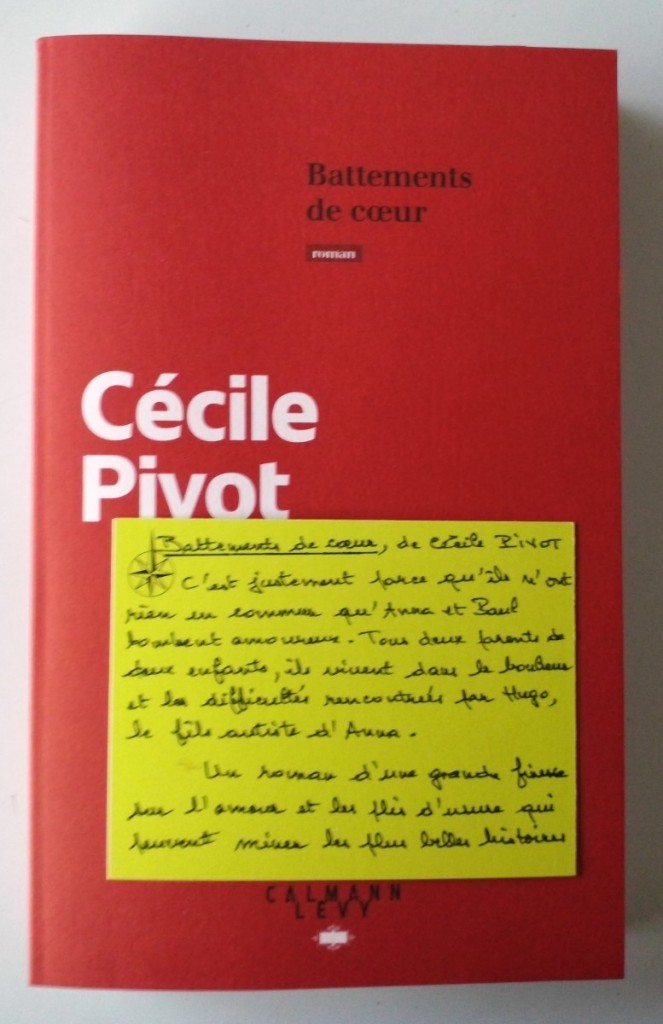 Battements
de cœur
roman
Cécile
Pivot
Battements de cœur, de Cécile PIVOT
C'est justement parce qu'ils n'ont
rien en commun qu'Anna et Paul
tombent amoureux. Tous deux parents de
deux enfants, ils vivent dans le bonheur
et les difficultés rencontrées par Hugo,
le fils autiste d'Anna.
Un roman d'une grande finesse
sur l'amour et les plis d'usure qui
peuvent miner les plus belles histoires
CALMANN
LEVY